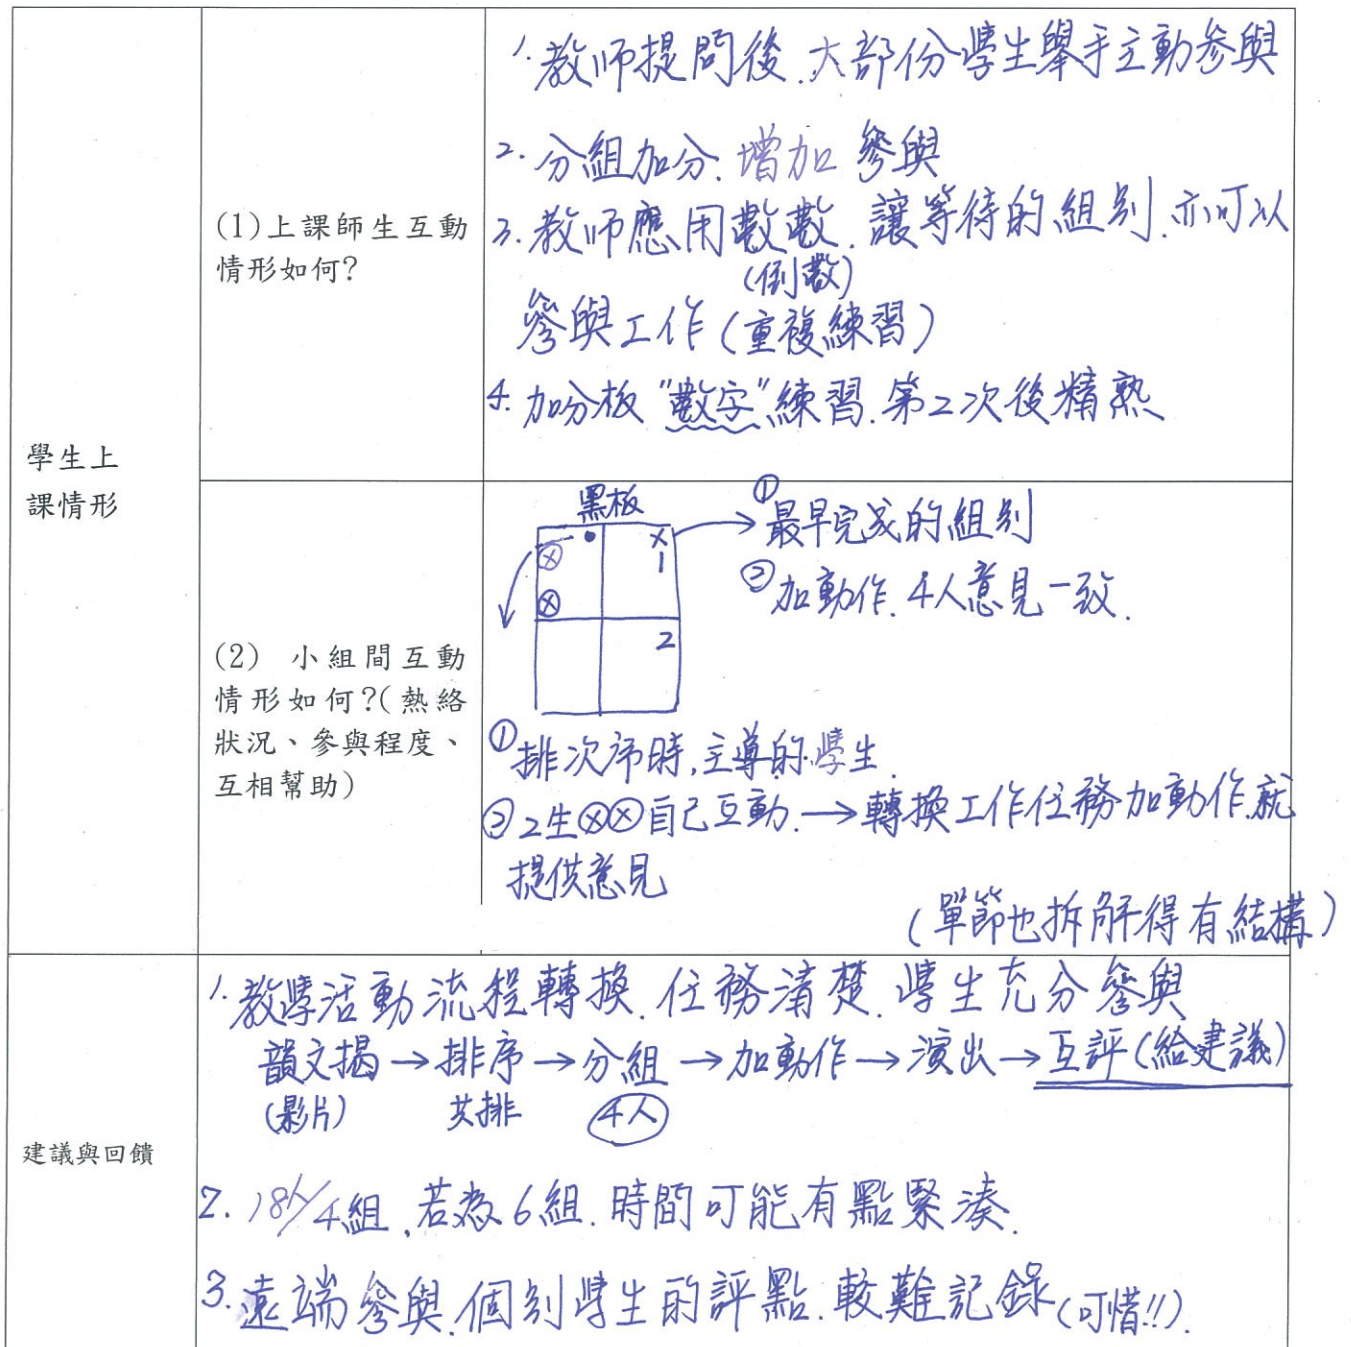 學生上
課情形
(1)上課師生互動
情形如何?
1.教師提問後.大部份學生舉手主動參與
2.分組加分.增加參與
3.教師應用數數.讓等待的組別.亦可以
(倒數)
參與工作(重複練習)
4.加分板"數字"練習.第2次後精熟
(2) 小組間互動
情形如何?(熱絡
狀況、參與程度、
互相幫助)
黑板
X
1
2
①最早完成的組別
②加動作.4人意見一致.
①排次序時,主導的學生.
②2生ⓧⓧ自己互動.→轉換工作任務加動作.就
提供意見
(單節也拆解得有結構)
建議與回饋
1.教學活動流程轉換.任務清楚.學生充分參與
韻文揭→排序→分組→加動作→演出→互評(給建議)
(影片) 共排 4人
2. 18人/4組,若為6組.時間可能有點緊湊.
3.遠端參與.個別學生的評點.較難記錄(可惜!!).